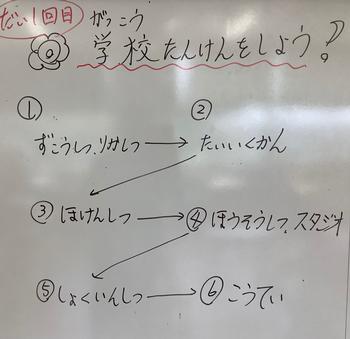 だい1回目
がっこう
学校たんけんをしよう!
① ②
ずこうしつ、りかしつ → たいいくかん
③ ほけんしつ → ④ ほうそうしつ、スタジオ
⑤ しょくいんしつ → ⑥ こうてい